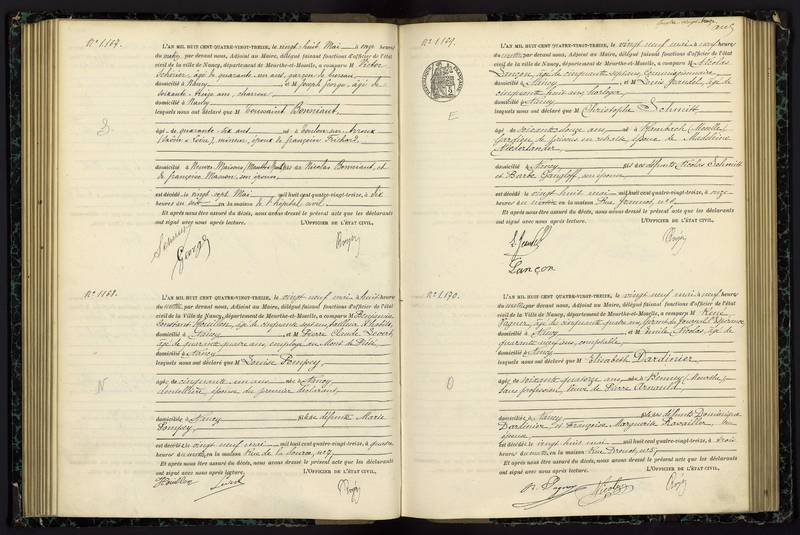 N° 1.167.
L'AN MIL HUIT CENT QUATRE-VINGT-TREIZE, le vingt huit Mai à onze heures
du matin, par devant nous, Adjoint au Maire, délégué faisant fonctions d'officier de l'état
civil de la ville de Nancy, département de Meurthe-et-Moselle, a comparu M. Victor
âgé de quarante un ans, garçon de bureau
domicilié à Nancy et M. Joseph George, âgé de
soixante-treize ans, charron
domicilié à Nancy
lesquels nous ont déclaré que M. Toussaint Bonniaut
âgé de quarante six ans né à Toulon sur Arroux
(Saône & Loire), mineur, époux de Françoise Frichard
domicilié à Neuves Maisons (Meurthe & Moselle) fils de Nicolas Bonniaut, et
de Françoise son épouse
est décédé le vingt sept Mai mil huit cent quatre-vingt-treize, à dix
heures du soir en la maison de l'hôpital civil
Et après nous être assuré du décès, nous avons dressé le présent acte que les déclarants
ont signé avec nous après lecture. L'OFFICIER DE L'ÉTAT CIVIL,
George
N° 1.168.
L'AN MIL HUIT CENT QUATRE-VINGT-TREIZE, le vingt neuf mai à huit heures
du matin, par devant nous, Adjoint au Maire, délégué faisant fonctions d'officier de l'état
civil de la Ville de Nancy, département de Meurthe-et-Moselle, a comparu M. Benjamin
Constant Houillon, âgé de cinquante sept ans, tailleur d'habits
domicilié à Nancy et M. Pierre Claude
âgé de quarante quatre ans, employé au Mont de Piété
domicilié à Nancy
lesquels nous ont déclaré que M. Louise Pompey
âgée de cinquante un ans née à Nancy
dentellière, épouse du premier déclarant
domiciliée à Nancy fille de défunte Marie
Pompey
est décédée le vingt neuf mai mil huit cent quatre-vingt-treize, à quatre
heures du matin, en la maison Rue de la Source, n° 7
Et après nous être assuré du décès, nous avons dressé le présent acte que les déclarants
ont signé avec nous après lecture. L'OFFICIER DE L'ÉTAT CIVIL,
Houillon
N° 1.169.
L'AN MIL HUIT CENT QUATRE-VINGT-TREIZE, le vingt neuf mai à neuf heures
du matin, par devant nous, Adjoint au Maire, délégué faisant fonctions d'officier de l'état
civil de la ville de Nancy, département de Meurthe-et-Moselle, a comparu M. Nicolas
Lançon, âgé de cinquante sept ans, commissionnaire
domicilié à Nancy et M. Louis âgé de
cinquante ans, horloger
domicilié à Nancy
lesquels nous ont déclaré que M. Christophe Schmitt
E
âgé de soixante douze ans né à (Moselle)
Gardien de prison en retraite époux de Madeleine
Niederlander
domicilié à Nancy fils de défunts Nicolas Schmitt
et Barbe Gangloff, son épouse
est décédé le vingt huit mai mil huit cent quatre-vingt-treize, à onze
heures du en la maison Rue Jeannot, n°
Et après nous être assuré du décès, nous avons dressé le présent acte que les déclarants
ont signé avec nous après lecture. L'OFFICIER DE L'ÉTAT CIVIL,
Lançon
N° 1.170.
L'AN MIL HUIT CENT QUATRE-VINGT-TREIZE, le vingt neuf mai à neuf heures
du matin, par devant nous, Adjoint au Maire, délégué faisant fonctions d'officier de l'état
civil de la Ville de Nancy, département de Meurthe-et-Moselle, a comparu M. René
Pagnier, âgé de cinquante quatre ans, gérant du journal l'Espérance
domicilié à Nancy et M. Emile Nicolas, âgé de
quarante ans, comptable
domicilié à Nancy
lesquels nous ont déclaré que M. Elisabeth Dardinier
O
âgée de soixante quatorze ans, née à Benney (Meurthe)
sans profession, veuve de Pierre Arnould
domiciliée à Nancy fille de défunts Dominique
Dardinier et Françoise Marguerite Ravailler, son
épouse
est décédée le vingt huit mai mil huit cent quatre-vingt-treize, à trois
heures du matin, en la maison Rue Drouot, n° 5
Et après nous être assuré du décès, nous avons dressé le présent acte que les déclarants
ont signé avec nous après lecture. L'OFFICIER DE L'ÉTAT CIVIL,
Nicolas